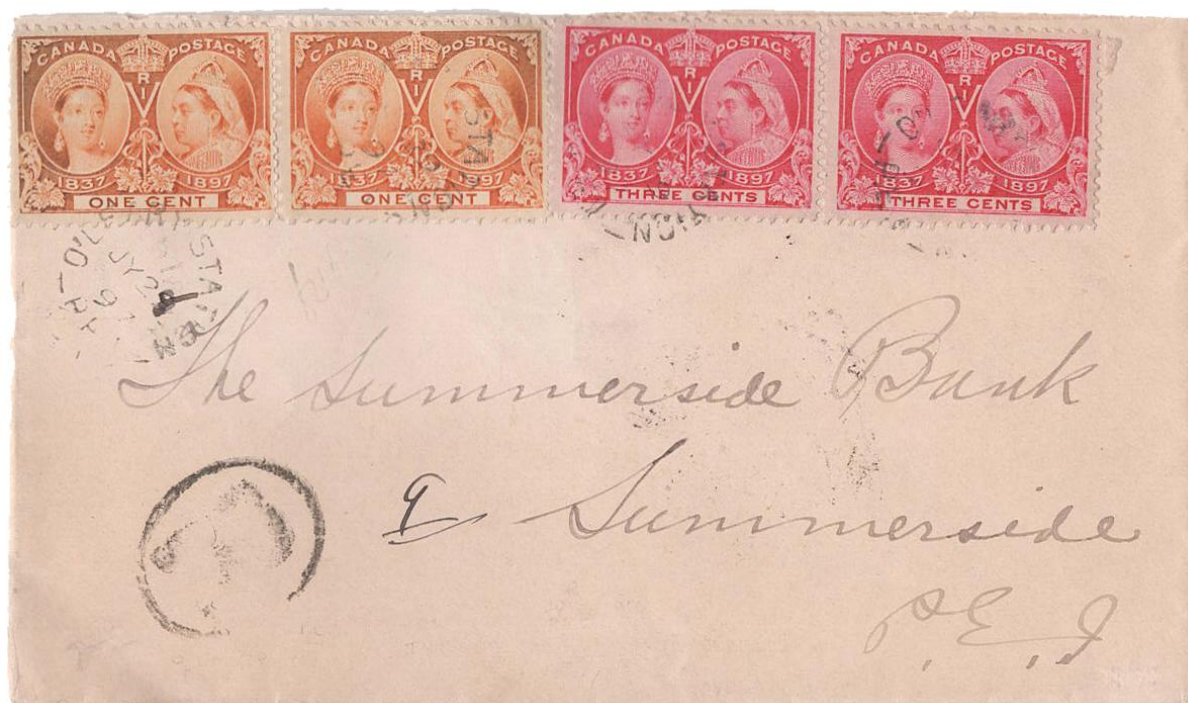 CANADA POSTAGE
V R I
1837 1897
ONE CENT
CANADA POSTAGE
V R I
1837 1897
ONE CENT
CANADA POSTAGE
V R I
1837 1897
THREE CENTS
CANADA POSTAGE
V R I
1837 1897
THREE CENTS
STATION
The Summerside Bank
9 Summerside
P.E.I